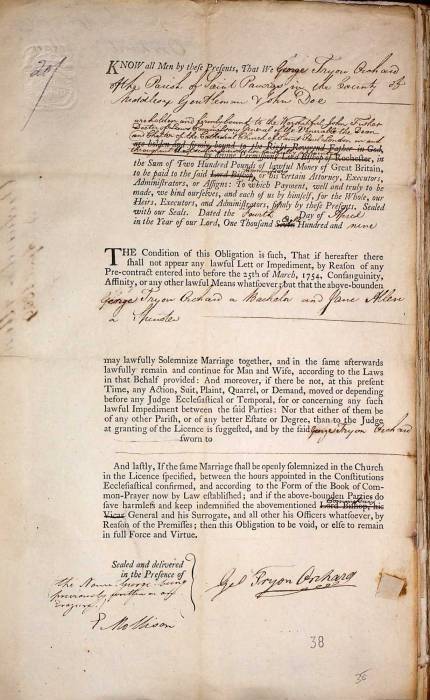 20/
KNOW all Men by these Presents, That We George Tryon Orchard
of the Parish of Saint Pancras in the County of
Middlesex Gentleman & John Doe
are holden and firmly bound to the Worshipful John Fisher
Doctor of Laws Commissary General of the the Dean
and Chapter of the Cathedral Church of Saint Paul London in and
are holden and firmly bound to the Right Reverend Father in God,
by Divine Permission, Lord Bishop of Rochester, in
the Sum of Two Hundred Pounds of lawful Money of Great Britain,
to be paid to the said Lord Bishop, Commissary or his certain Attorney, Executors,
Administrators, or Assigns: To which Payment, well and truly to be
made, we bind ourselves, and each of us by himself, for the Whole, our
Heirs, Executors, and Administrators, firmly by these Presents. Sealed
with our Seals. Dated the Fourth Day of April
in the Year of our Lord, One Thousand Eight Hundred and nine
THE Condition of this Obligation is such, That if hereafter there
shall not appear any lawful Lett or Impediment, by Reason of any
Pre-contract entered into before the 25th of March, 1754, Consanguinity,
Affinity, or any other lawful Means whatsoever; but that the above-bounden
George Tryon Orchard a Bachelor and Jane Allen
a Spinster
may lawfully Solemnize Marriage together, and in the same afterwards
lawfully remain and continue for Man and Wife, according to the Laws
in that Behalf provided: And moreover, if there be not, at this present
Time, any Action, Suit, Plaint, Quarrel, or Demand, moved or depending
before any Judge Ecclesiastical or Temporal, for or concerning any such
lawful Impediment between the said Parties: Nor that either of them be
of any other Parish, or of any better Estate or Degree, than to the Judge
at granting of the Licence is suggested, and by the said George Tryon Orchard
sworn to
And lastly, If the same Marriage shall be openly solemnized in the Church
in the Licence specified, between the hours appointed in the Constitutions
Ecclesiastical confirmed, and according to the Form of the Book of Com-
mon-Prayer now by Law established; and if the above-bounden Parties do
save harmless and keep indemnified the abovementioned Commissary Lord Bishop, his
Vicar General and his Surrogate, and all other his Officers whatsoever, by
Reason of the Premisses; then this Obligation to be void, or else to remain
in full Force and Virtue.
Sealed and delivered
in the Presence of
the Name George being
previously written on an
Erasure.
E Mollison
Geo Tryon Orchard
38
36